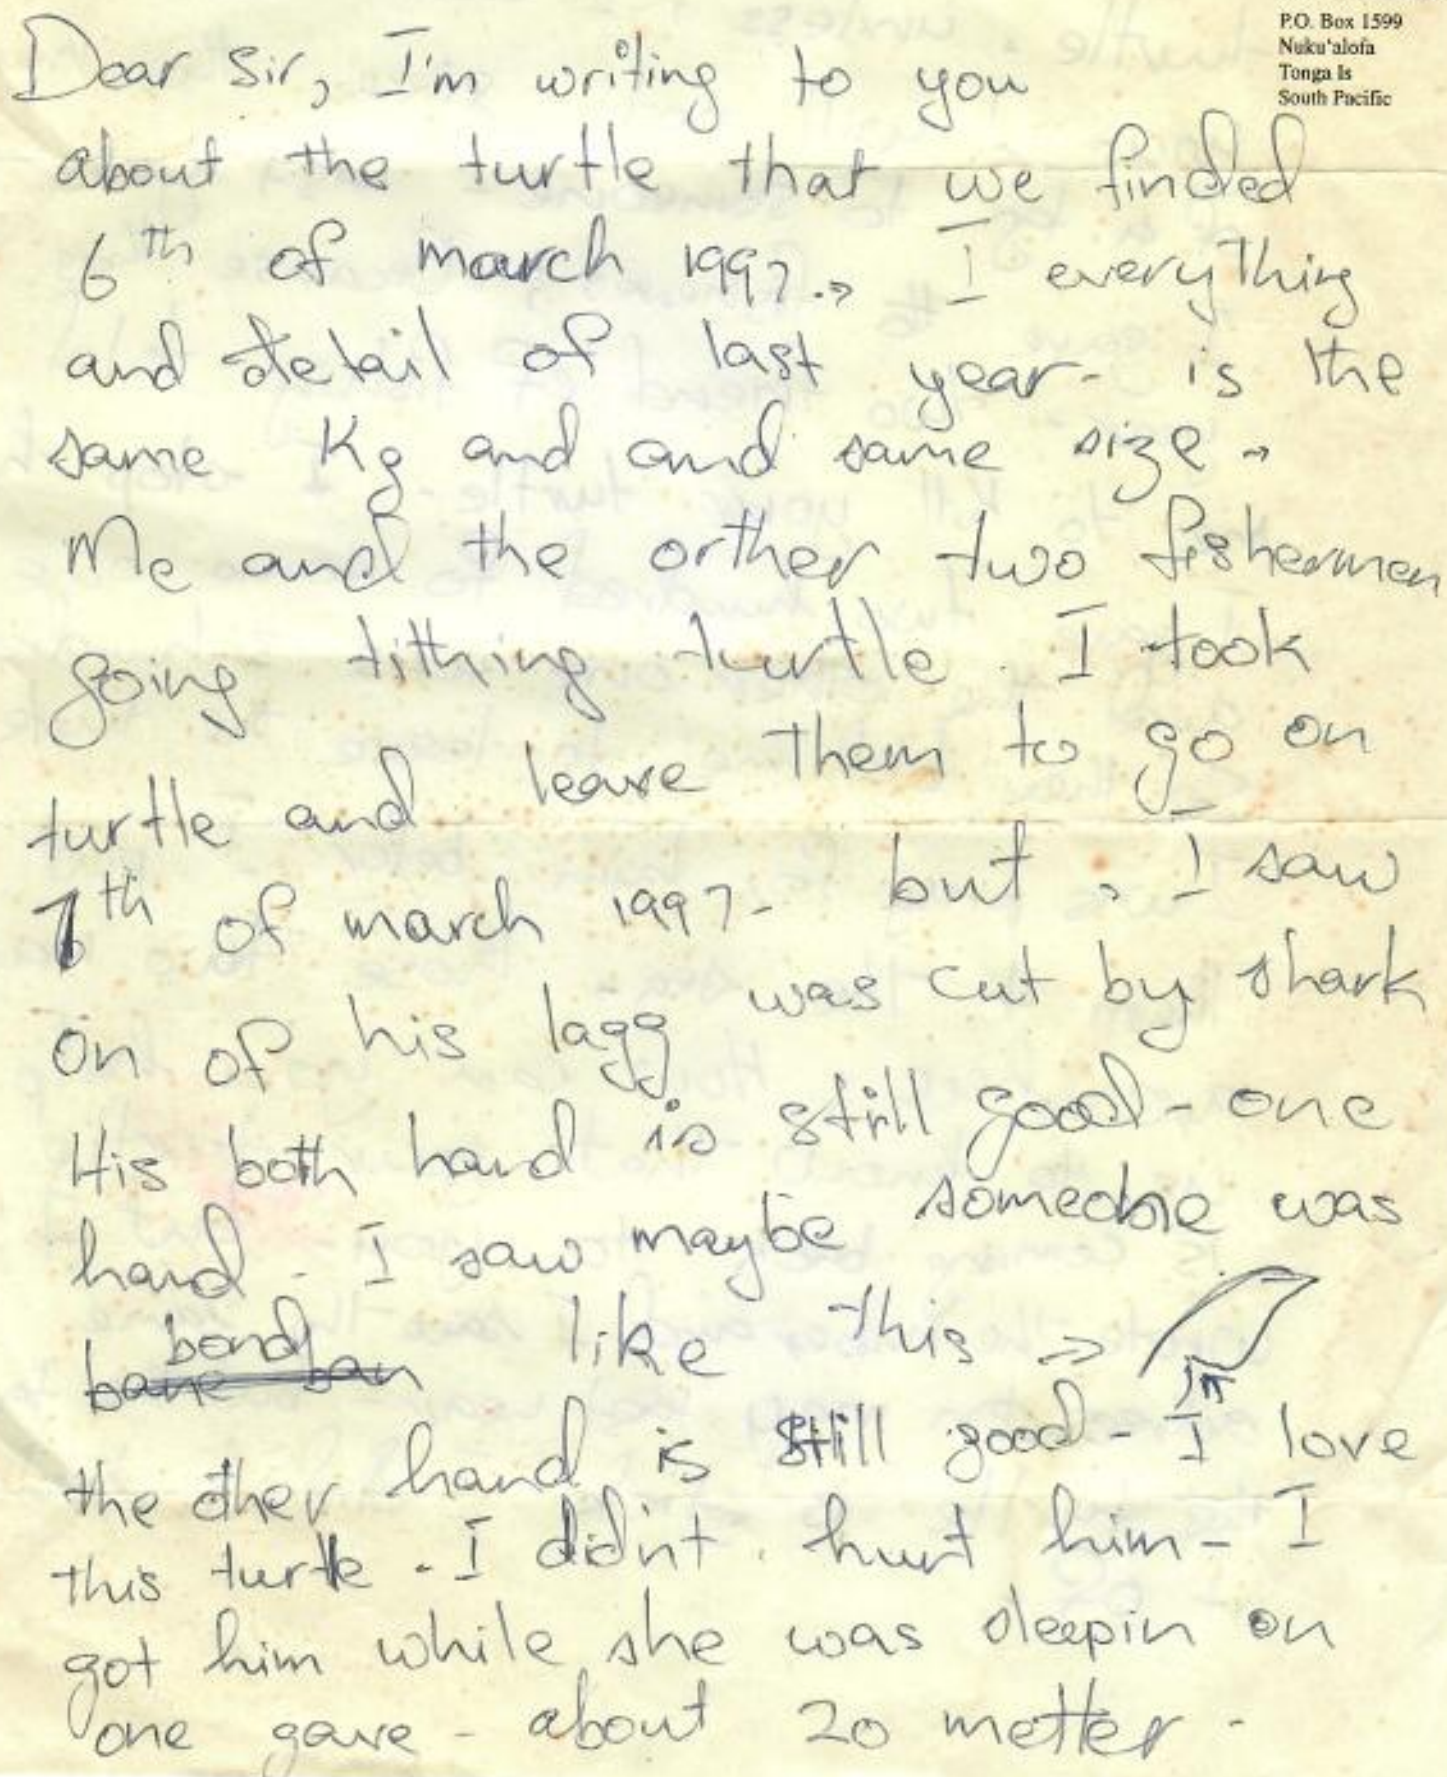 P.O. Box 1599
Nuku'alofa
Tonga Is
South Pacific
Dear Sir, I'm writing to you
about the turtle that we finded
6th of march 1997. I everything
and detail of last year - is the
same Kg and and same size -
Me and the orther two fishermen
going tithing turtle. I took
turtle and leave them to go on
7th of march 1997 - but, I saw
on of his lagg was cut by shark
His both hand is still good - one
hand - I saw maybe someone was
bond like this →
the other hand is still good - I love
this turtle - I didn't hurt him - I
got him while she was sleepin on
one gave - about 20 metter -